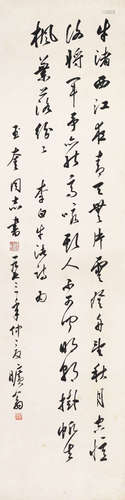 牛渚西江夜青天無片雲登舟望秋月空憶
謝將軍予亦能高詠斯人不可聞明朝掛帆去
楓葉落紛〻 李白牛渚詩為
玉奎同志書 年仲夏 曠翁